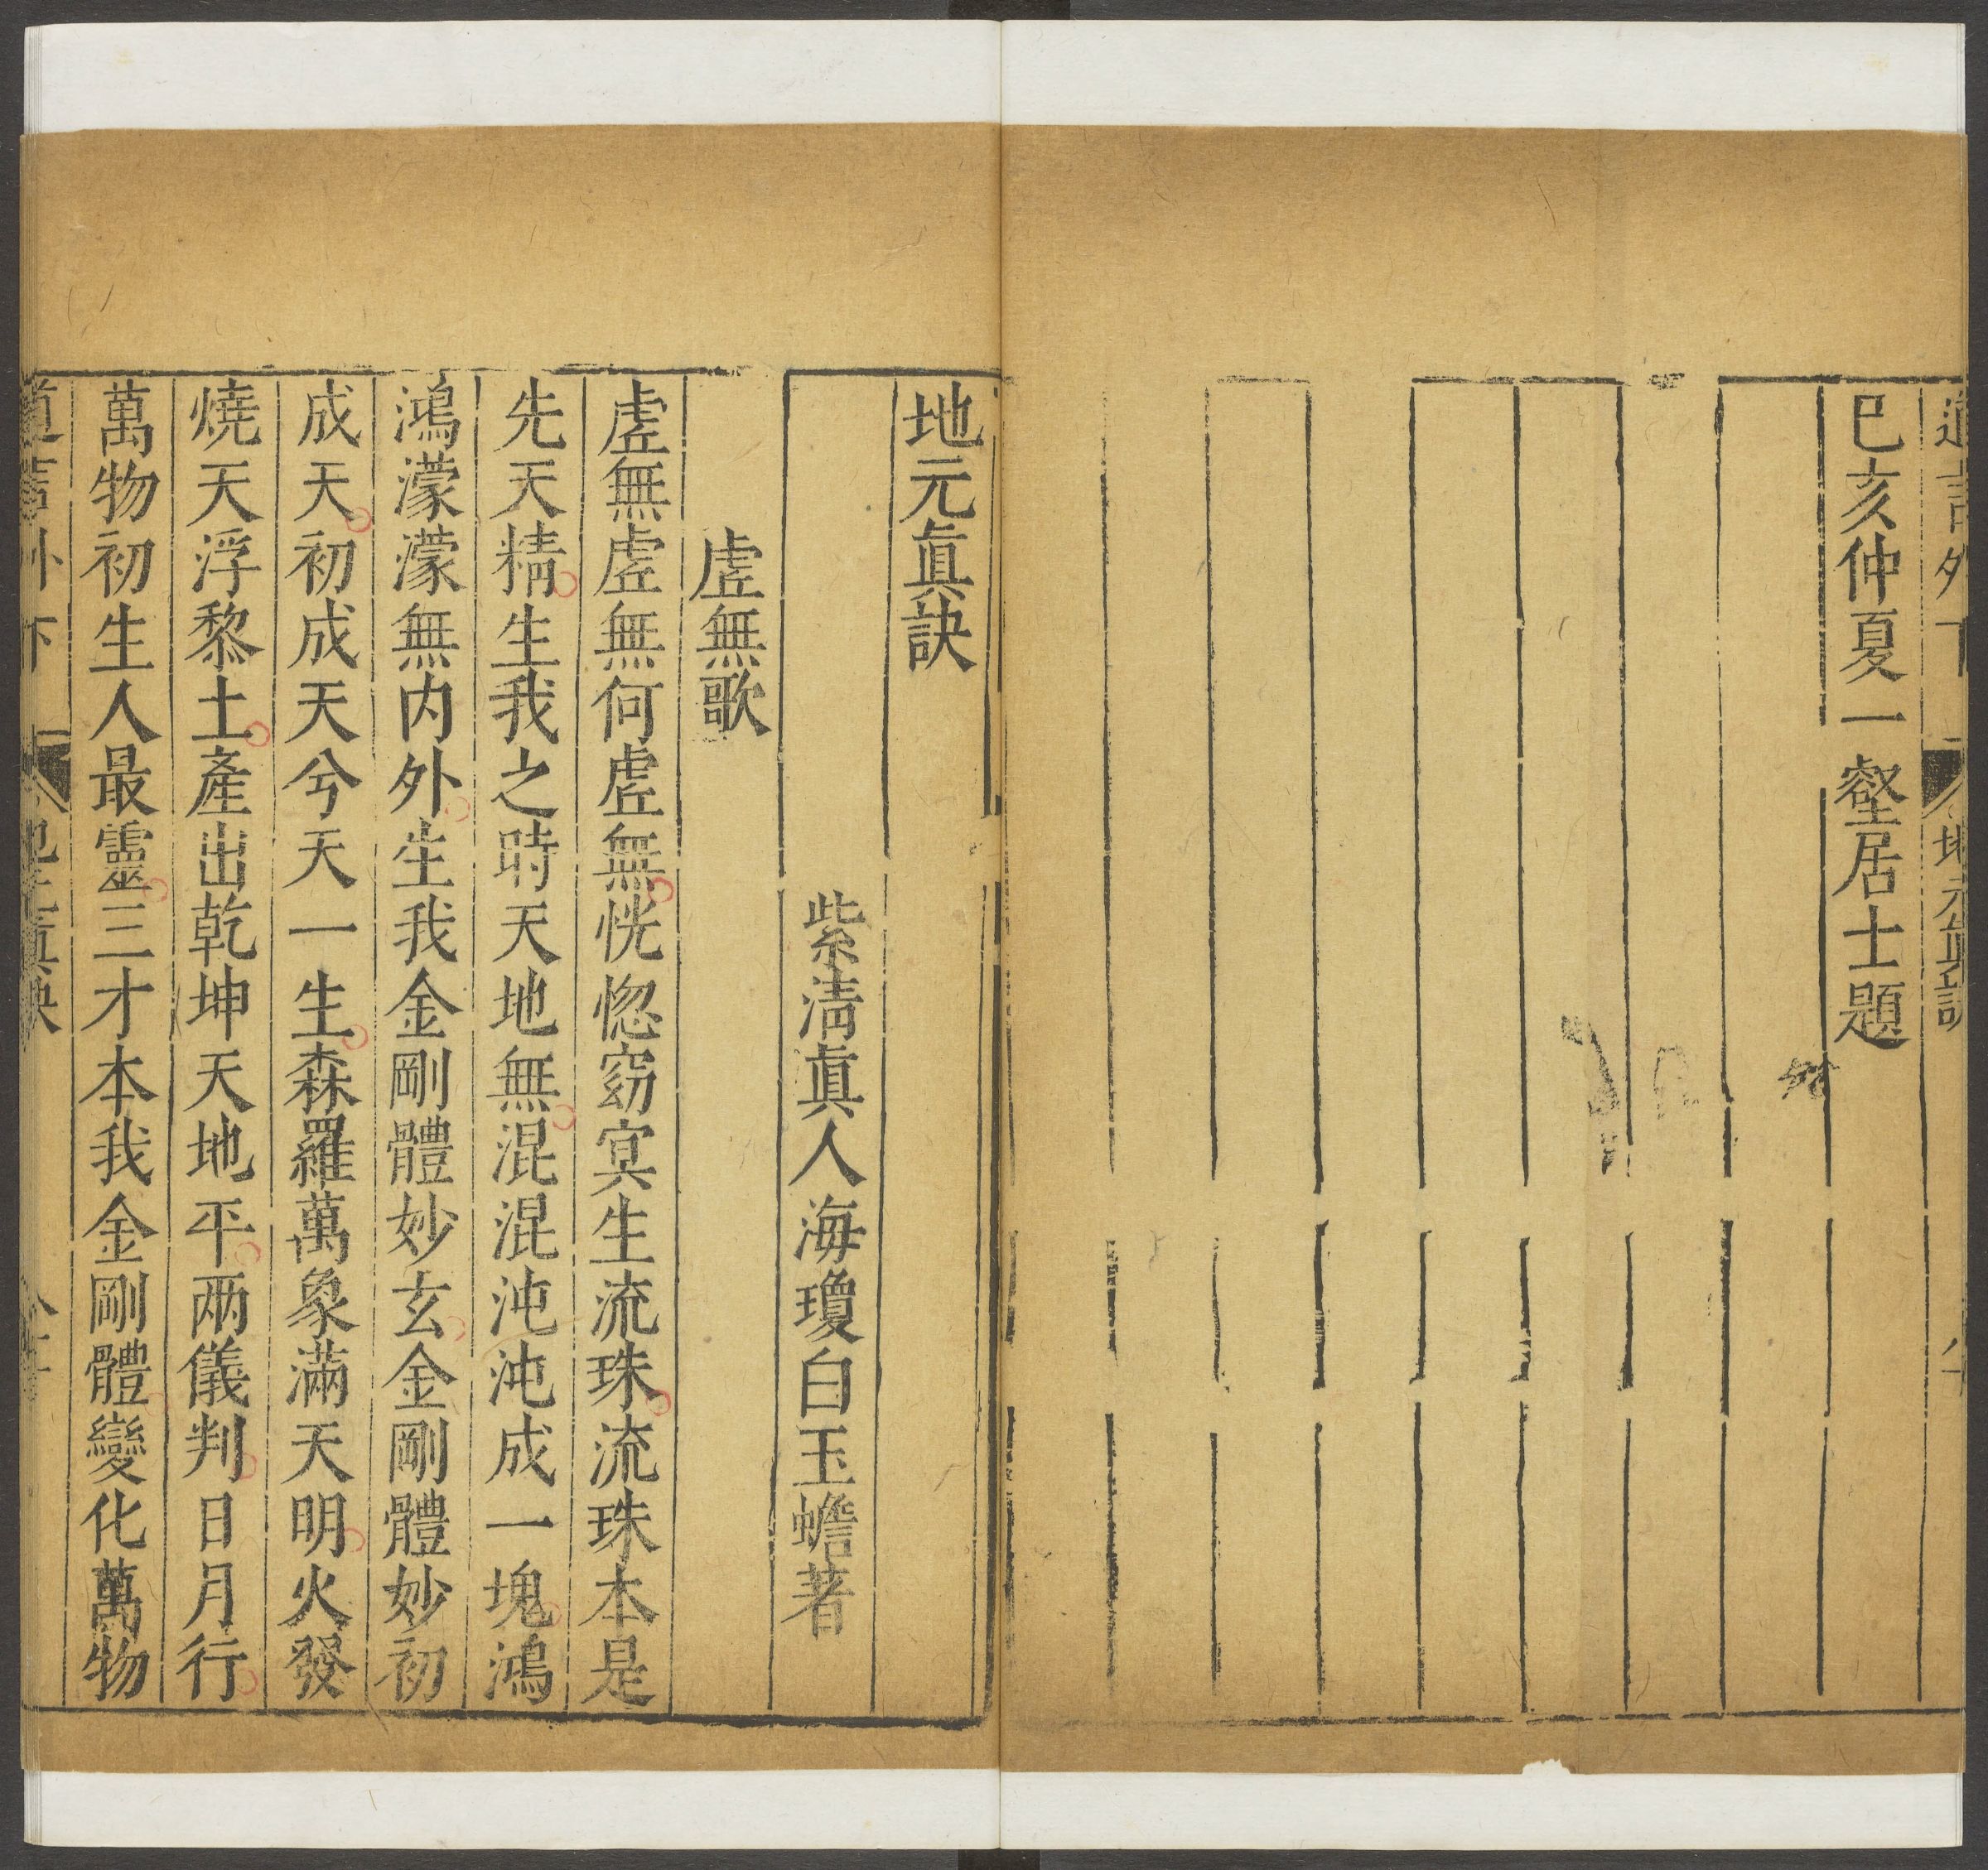 道言外下 地元真訣
巳亥仲夏一壑居士題
地元真訣
紫淸真人海瓊白玉蟾著
虛無歌
虛無虛無何虛無恍惚窈冥生流珠流珠本是
先天精生我之時天地無混混沌沌成一塊鴻
鴻濛濛無内外生我金剛體妙玄金剛體妙初
成天初成天兮天一生森羅萬象滿天明火發
燒天浮黎土產出乾坤天地平两儀判日月行
萬物初生人最靈三才本我金剛體變化萬物
道言外下 地元真訣